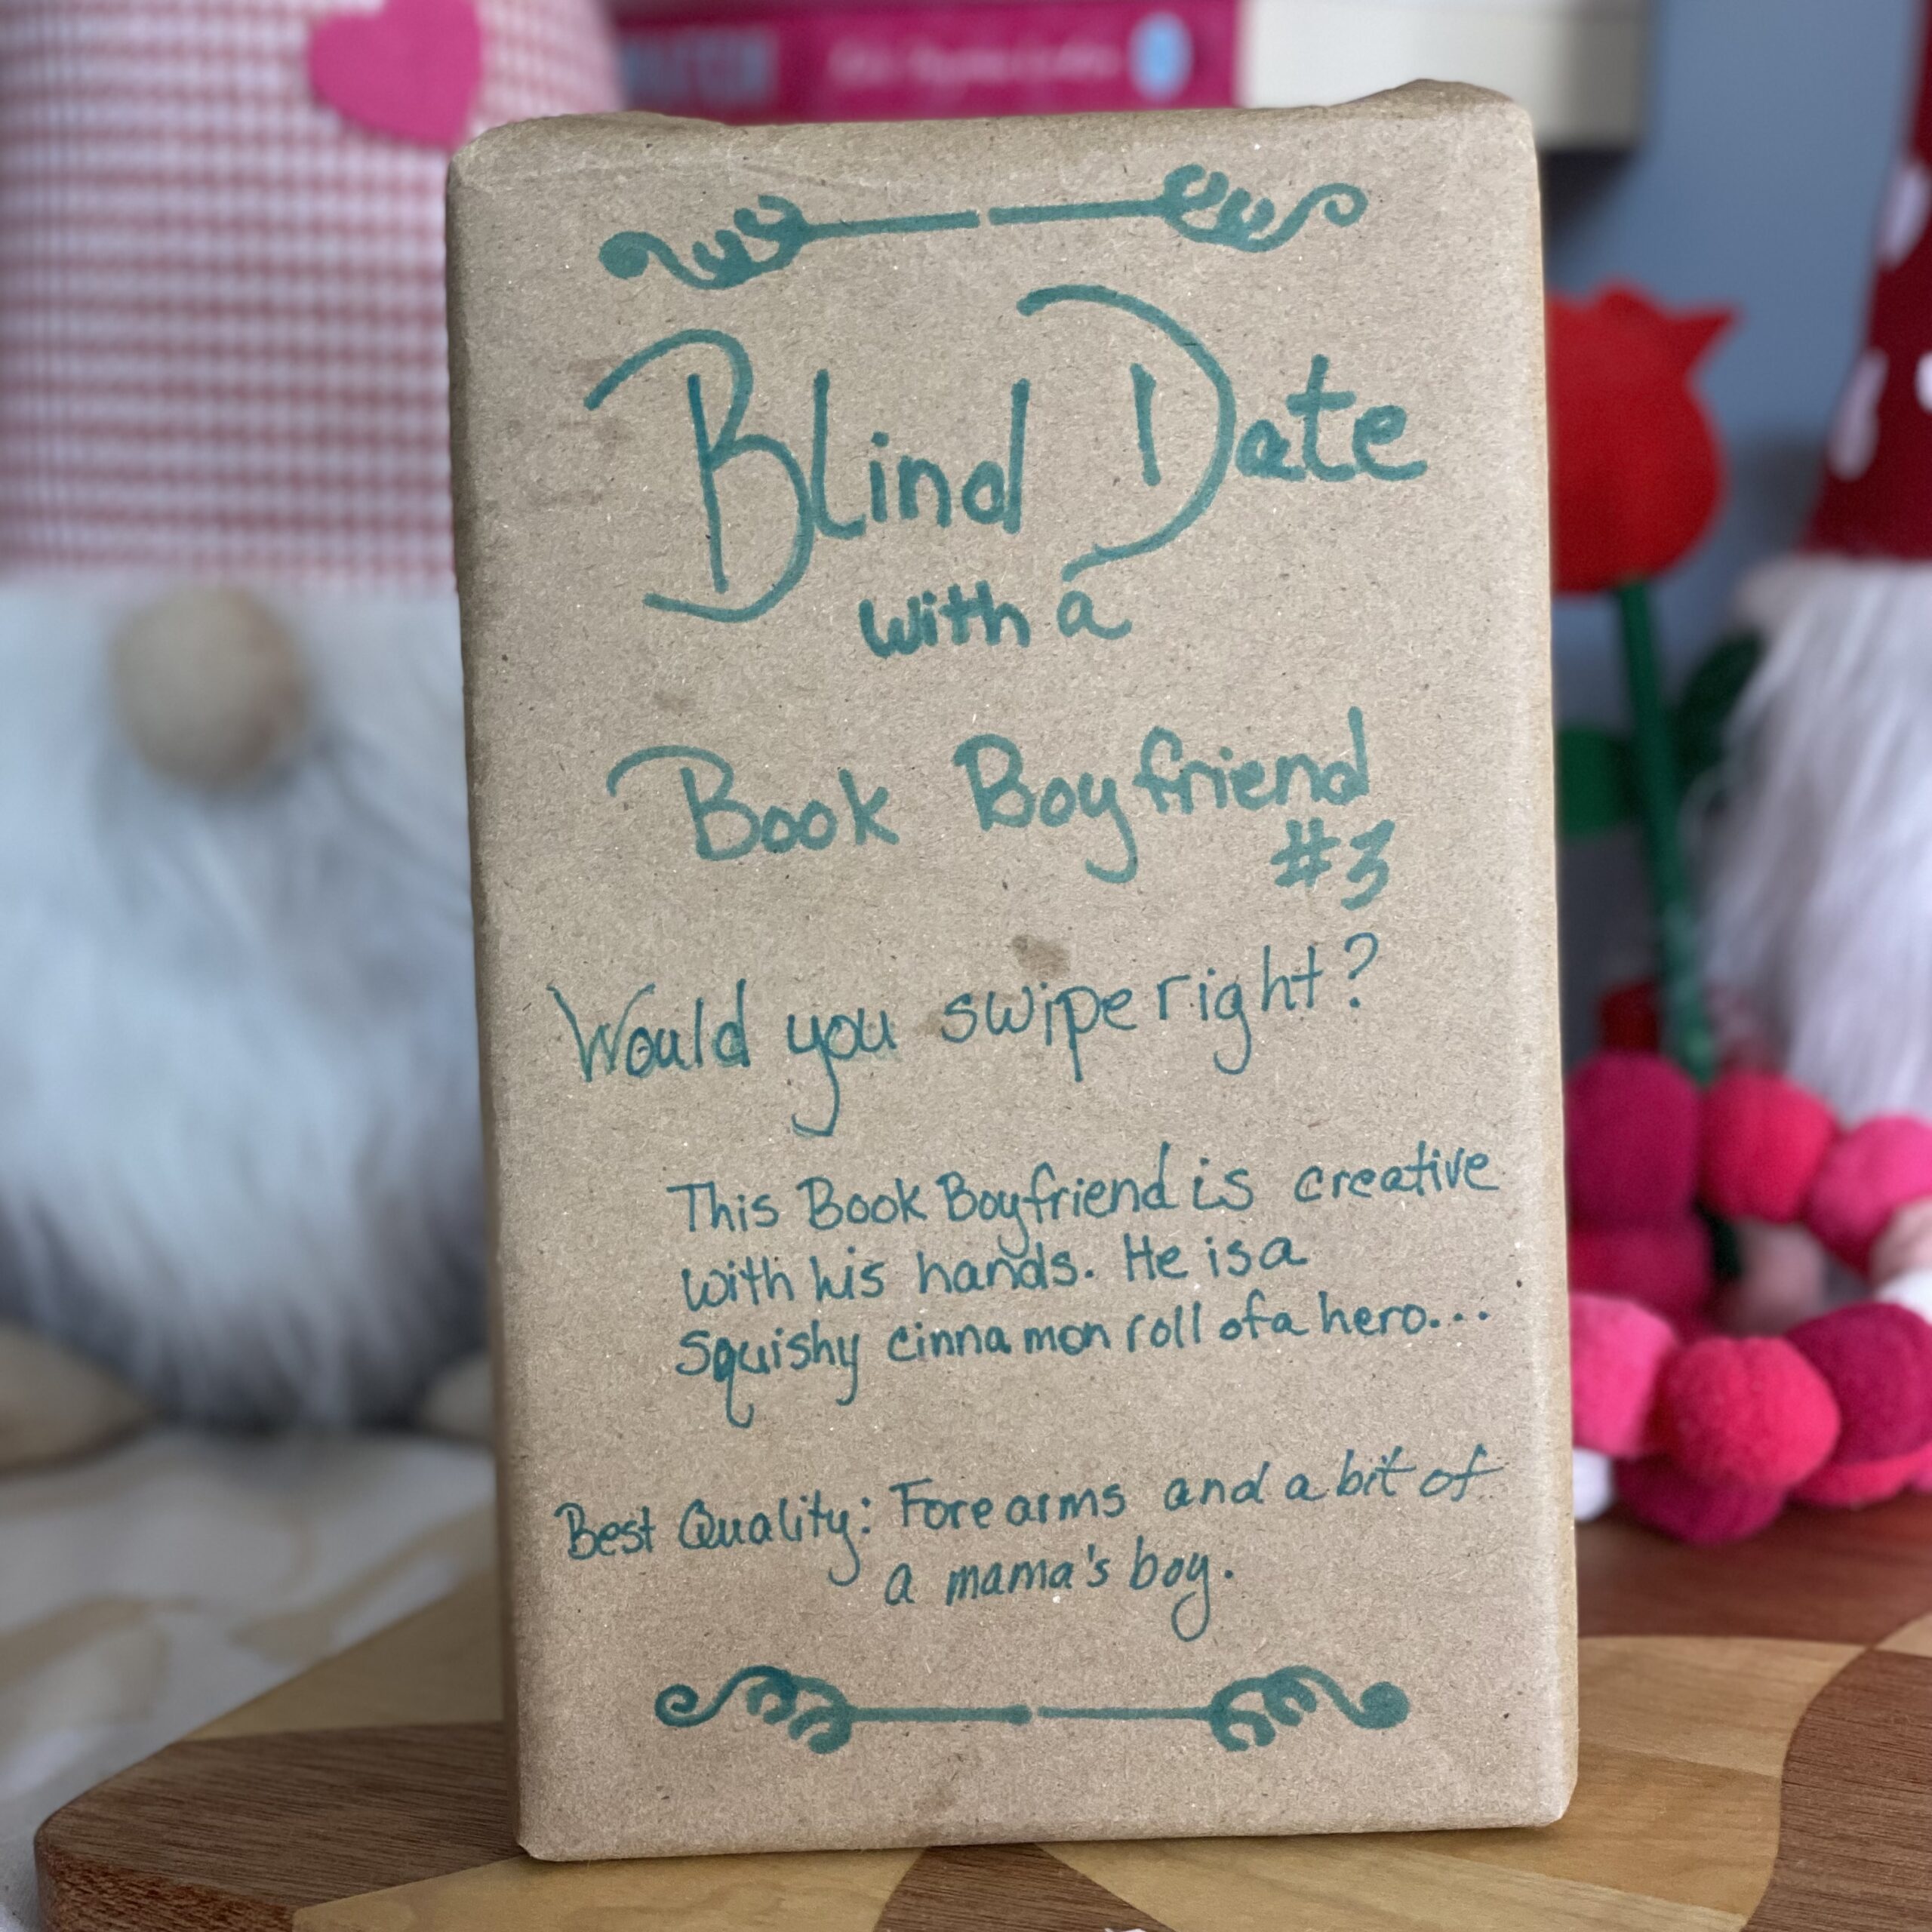 Blind Date
with a
Book Boyfriend
#3
Would you swipe right?
This Book Boyfriend is creative
with his hands. He is a
squishy cinnamon roll of a hero...
Best Quality: Forearms and a bit of
a mama's boy.